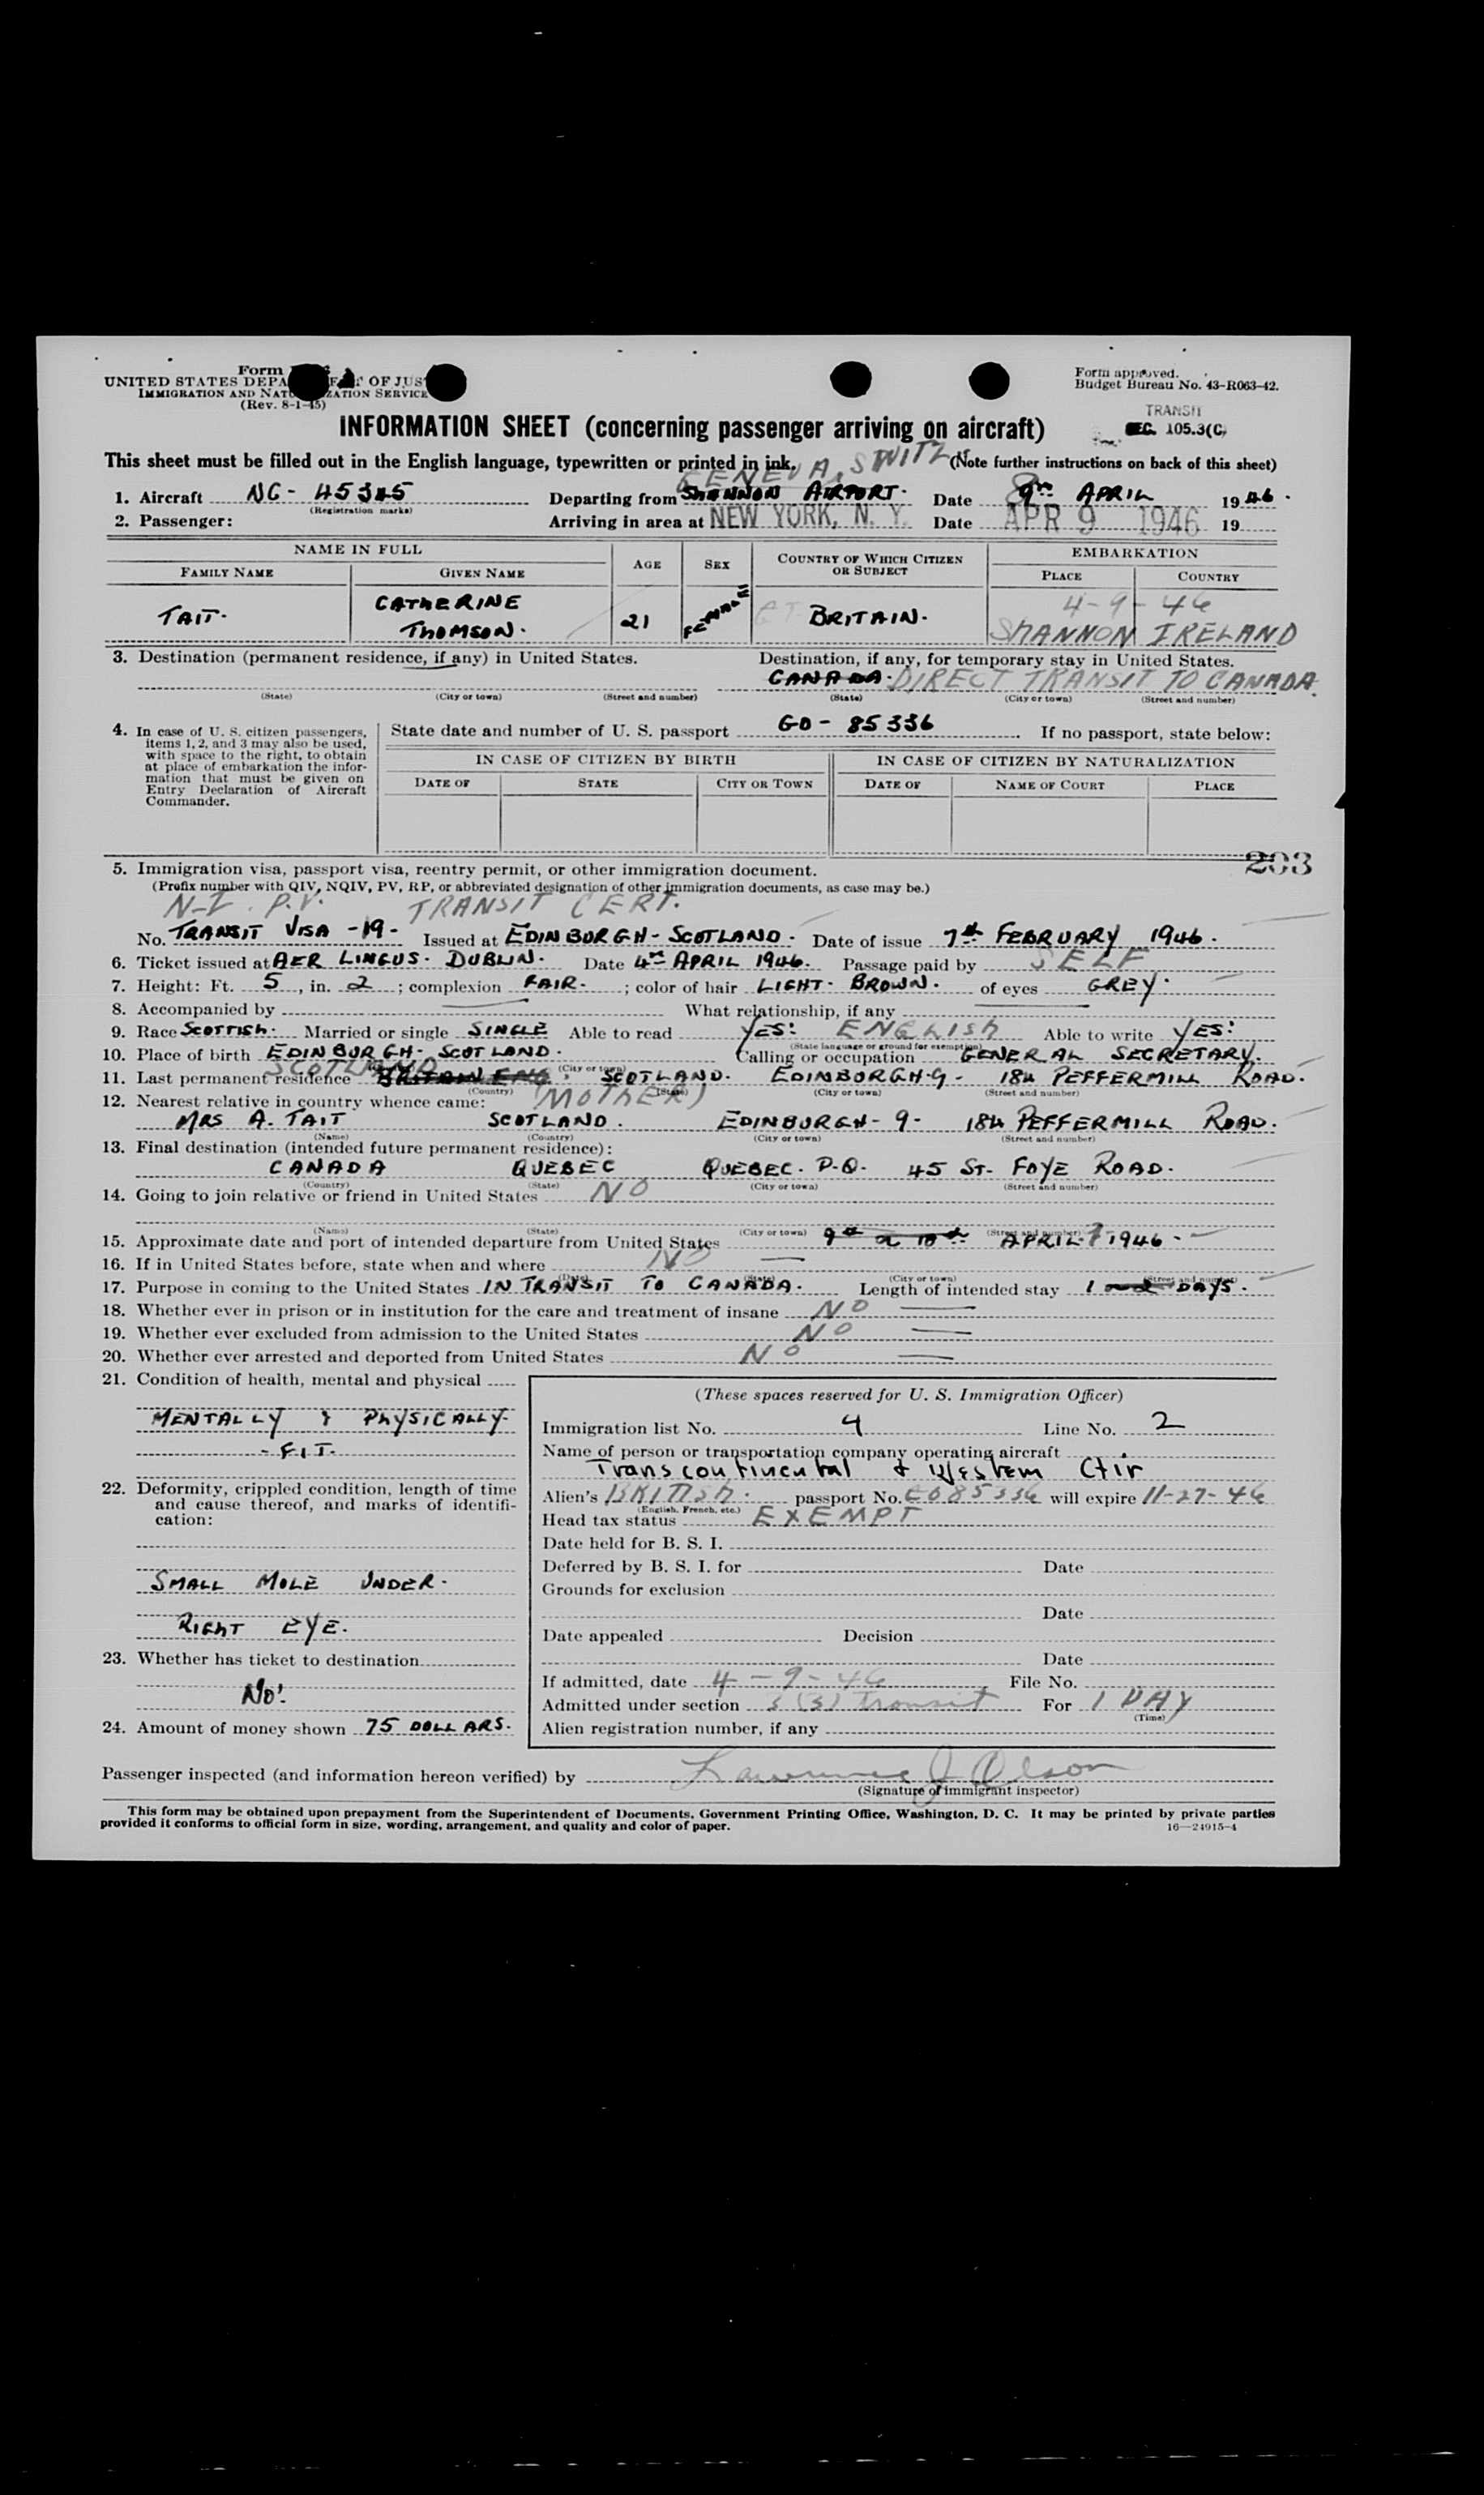 Form
UNITED STATES DEPA OF JUS
IMMIGRATION AND NATU ZATION SERVICE
(Rev. 8-1-45)
Form approved.
Budget Bureau No. 43-R063-42.
TRANSIT
SEC. 105.3(C)
INFORMATION SHEET (concerning passenger arriving on aircraft)
This sheet must be filled out in the English language, typewritten or printed in ink. (Note further instructions on back of this sheet)
GENEVA, SWITZ
1. Aircraft NC-45345 Departing from SHANNON AIRPORT. Date 9TH APRIL 1946.
8
(Registration marks)
2. Passenger: Arriving in area at NEW YORK, N. Y. Date APR 9 1946 19
NAME IN FULL AGE SEX COUNTRY OF WHICH CITIZEN OR SUBJECT EMBARKATION
FAMILY NAME GIVEN NAME PLACE COUNTRY
4-9-46
TAIT. CATHERINE THOMSON. 21 FEMALE GT BRITAIN. SHANNON IRELAND
3. Destination (permanent residence, if any) in United States. Destination, if any, for temporary stay in United States.
CANADA. DIRECT TRANSIT TO CANADA.
(State) (City or town) (Street and number) (State) (City or town) (Street and number)
4. In case of U. S. citizen passengers, items 1, 2, and 3 may also be used, with space to the right, to obtain at place of embarkation the information that must be given on Entry Declaration of Aircraft Commander.
State date and number of U. S. passport GO-85336 If no passport, state below:
IN CASE OF CITIZEN BY BIRTH IN CASE OF CITIZEN BY NATURALIZATION
DATE OF STATE CITY OR TOWN DATE OF NAME OF COURT PLACE
203
5. Immigration visa, passport visa, reentry permit, or other immigration document.
(Prefix number with QIV, NQIV, PV, RP, or abbreviated designation of other immigration documents, as case may be.)
N-I. P.V. TRANSIT CERT.
No. TRANSIT VISA -19- Issued at EDINBURGH-SCOTLAND. Date of issue 7th FEBRUARY 1946.
6. Ticket issued at AER LINGUS. DUBLIN. Date 4TH APRIL 1946. Passage paid by SELF
7. Height: Ft. 5, in. 2; complexion FAIR.; color of hair LIGHT. BROWN. of eyes GREY.
8. Accompanied by What relationship, if any
9. Race SCOTTISH. Married or single SINGLE Able to read YES: ENGLISH Able to write YES:
(State language or ground for exemption)
10. Place of birth EDINBURGH. SCOTLAND. Calling or occupation GENERAL SECRETARY.
(City or town)
SCOTLAND
11. Last permanent residence BRITAIN ENG. SCOTLAND. EDINBURGH-9- 184 PEFFERMILL ROAD.
(Country) (State) (City or town) (Street and number)
12. Nearest relative in country whence came: (MOTHER)
MRS A. TAIT SCOTLAND. EDINBURGH-9- 184 PEFFERMILL ROAD.
(Name) (Country) (City or town) (Street and number)
13. Final destination (intended future permanent residence):
CANADA QUEBEC QUEBEC. P.Q. 45 ST. FOYE ROAD.
(Country) (State) (City or town) (Street and number)
14. Going to join relative or friend in United States NO
(Name) (State) (City or town) (Street and number)
15. Approximate date and port of intended departure from United States 9th or 10th APRIL 9 1946.
16. If in United States before, state when and where NO
(Date) (State) (City or town) (Street and number)
17. Purpose in coming to the United States IN TRANSIT TO CANADA. Length of intended stay 1 or 2 DAYS.
18. Whether ever in prison or in institution for the care and treatment of insane NO
19. Whether ever excluded from admission to the United States NO
20. Whether ever arrested and deported from United States NO
21. Condition of health, mental and physical
MENTALLY & PHYSICALLY
-FIT-
22. Deformity, crippled condition, length of time and cause thereof, and marks of identification:
SMALL MOLE UNDER.
RIGHT EYE.
23. Whether has ticket to destination
NO.
24. Amount of money shown 75 DOLLARS.
(These spaces reserved for U. S. Immigration Officer)
Immigration list No. 4 Line No. 2
Name of person or transportation company operating aircraft
Transcontinental & Western Air
Alien's BRITISH. passport No. C085336 will expire 11-27-46
(English, French, etc.)
Head tax status EXEMPT
Date held for B. S. I.
Deferred by B. S. I. for Date
Grounds for exclusion
Date
Date appealed Decision
Date
If admitted, date 4-9-46 File No.
Admitted under section 3(3) transit For 1 DAY
(Time)
Alien registration number, if any
Passenger inspected (and information hereon verified) by Lawrence J Olson
(Signature of immigrant inspector)
This form may be obtained upon prepayment from the Superintendent of Documents, Government Printing Office, Washington, D. C. It may be printed by private parties
provided it conforms to official form in size, wording, arrangement, and quality and color of paper.
16—24915-4